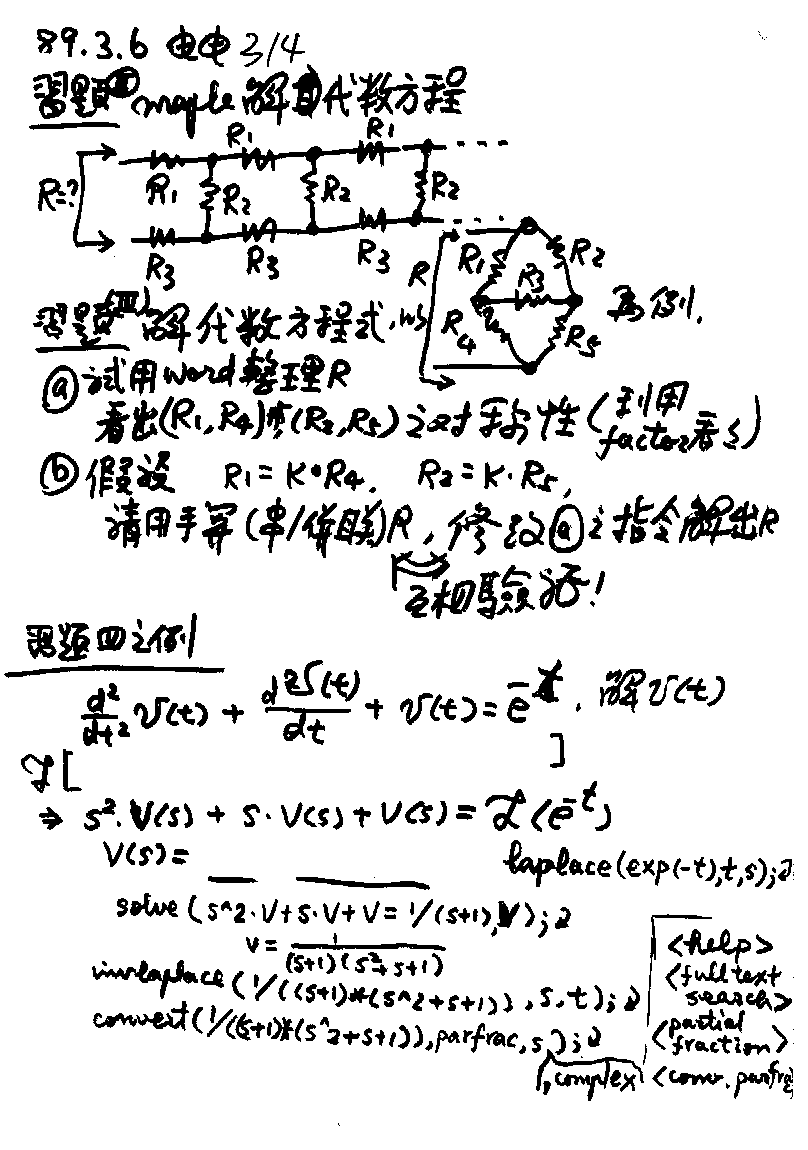 89.3.6 电电 3/4
習題Ⅱ maple解代数方程
R1 R1
R=? R1 R2 R2 R2
R3 R3 R3
R R1 R2 R3 R4 R5 為例.
習題(Ⅲ) 解代數方程式, 以
ⓐ 試用word整理R
看出(R1,R4)与(R2,R5)之对称性(利用factor看看)
ⓑ 假設 R1=K·R4, R2=K·R5,
請用手算(串/併联)R, 修改ⓐ之指令解出R
互相驗证!
習題四之例
d²/dt² v(t) + dv(t)/dt + v(t) = e^-t. 解v(t)
ℒ[ ]
⇒ s²·V(s) + s·V(s) + V(s) = ℒ(e^-t)
V(s)= laplace(exp(-t),t,s);
solve(s^2·V+s·V+V=1/(s+1),V);
V= 1/((s+1)(s²+s+1))
invlaplace(1/((s+1)*(s^2+s+1)),s,t);
convert(1/((s+1)*(s^2+s+1)),parfrac,s);
,complex
<help>
<full text
search>
<partial
fraction>
<conv. parfrac